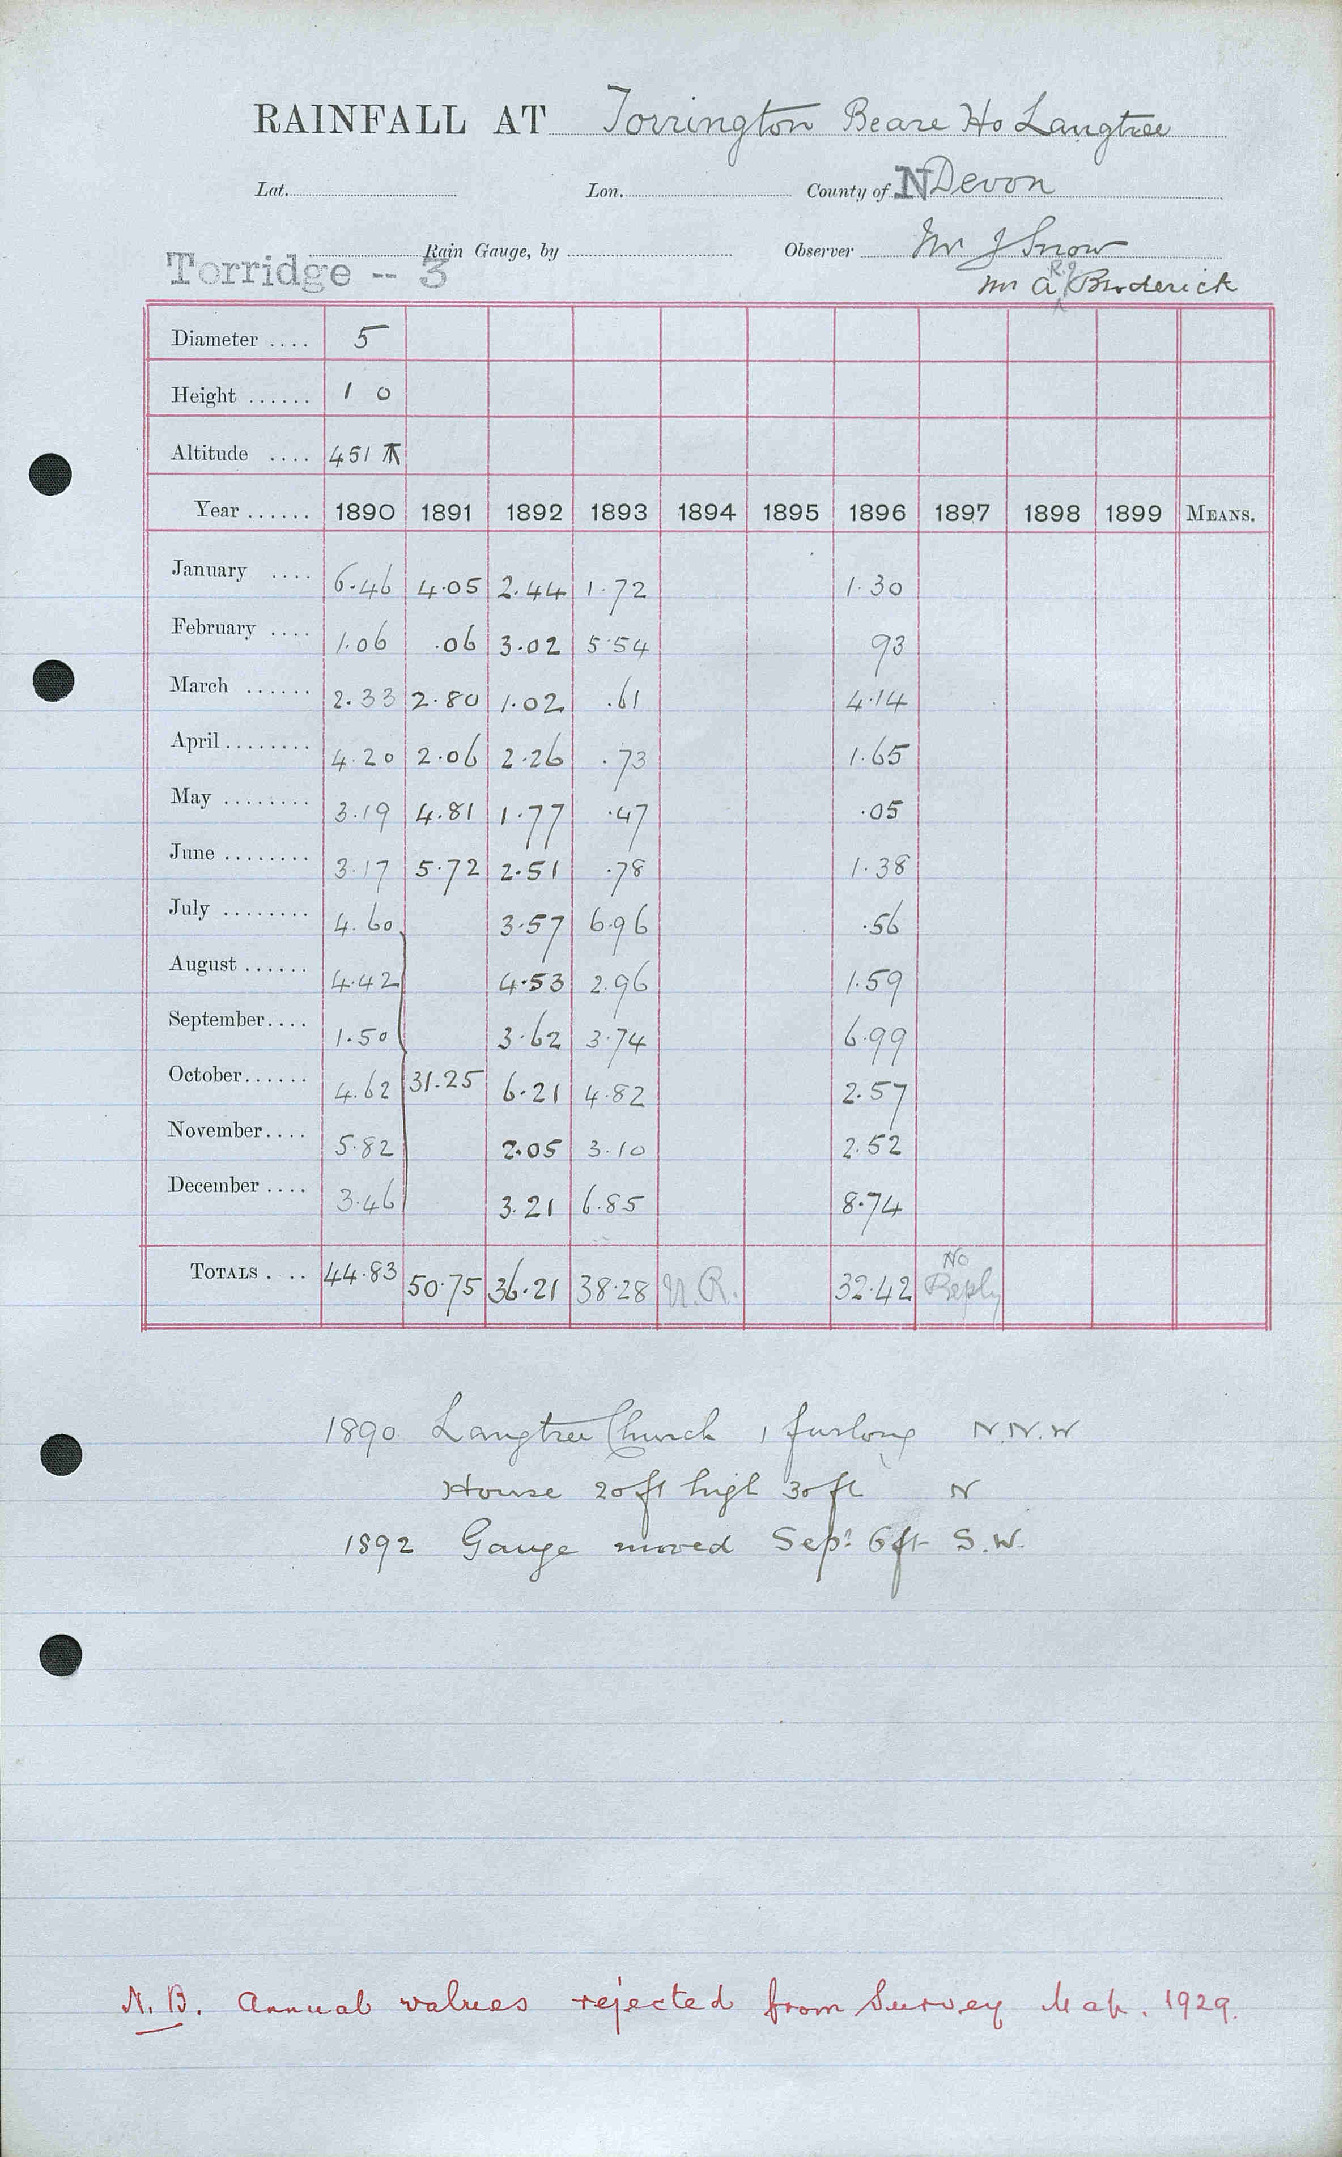 RAINFALL AT Torrington Beare Ho Langtree
Lat. Lon. County of N Devon
Rain Gauge, by Observer Mr J Snow
Torridge -- 3 Mr A R.J. Broderick
Diameter .... 5
Height ...... 1 0
Altitude .... 451
Year ...... 1890 1891 1892 1893 1894 1895 1896 1897 1898 1899 MEANS.
January .... 6.46 4.05 2.44 1.72 1.30
February .... 1.06 .06 3.02 5.54 93
March ...... 2.33 2.80 1.02 .61 4.14
April ........ 4.20 2.06 2.26 .73 1.65
May ........ 3.19 4.81 1.77 .47 .05
June ........ 3.17 5.72 2.51 .78 1.38
July ........ 4.60 3.57 6.96 .56
August ...... 4.42 4.53 2.96 1.59
September.... 1.50 3.62 3.74 6.99
October...... 4.62 31.25 6.21 4.82 2.57
November.... 5.82 2.05 3.10 2.52
December .... 3.46 3.21 6.85 8.74
TOTALS . .. 44.83 50.75 36.21 38.28 N.R. 32.42 No Reply
1890 Langtree Church 1 furlong N.N.W
House 20ft high 30ft N
1892 Gauge moved Sept 6ft S.W.
N.B. Annual values rejected from Survey Map. 1929.